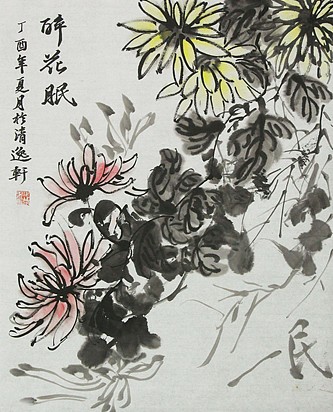 醉花眠
丁酉年夏月於清逸軒